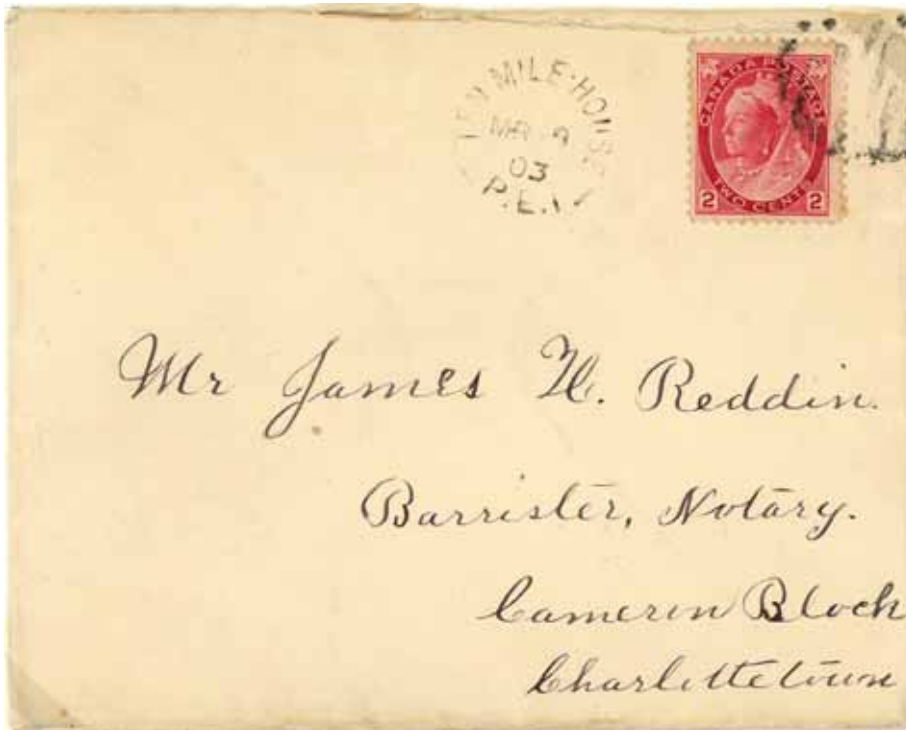 TEN MILE·HOUSE
MR 9
03
P.E.I.
CANADA POSTAGE
2 TWO CENTS 2
Mr James H. Reddin.
Barrister, Notary.
Cameron Block
Charlottetown